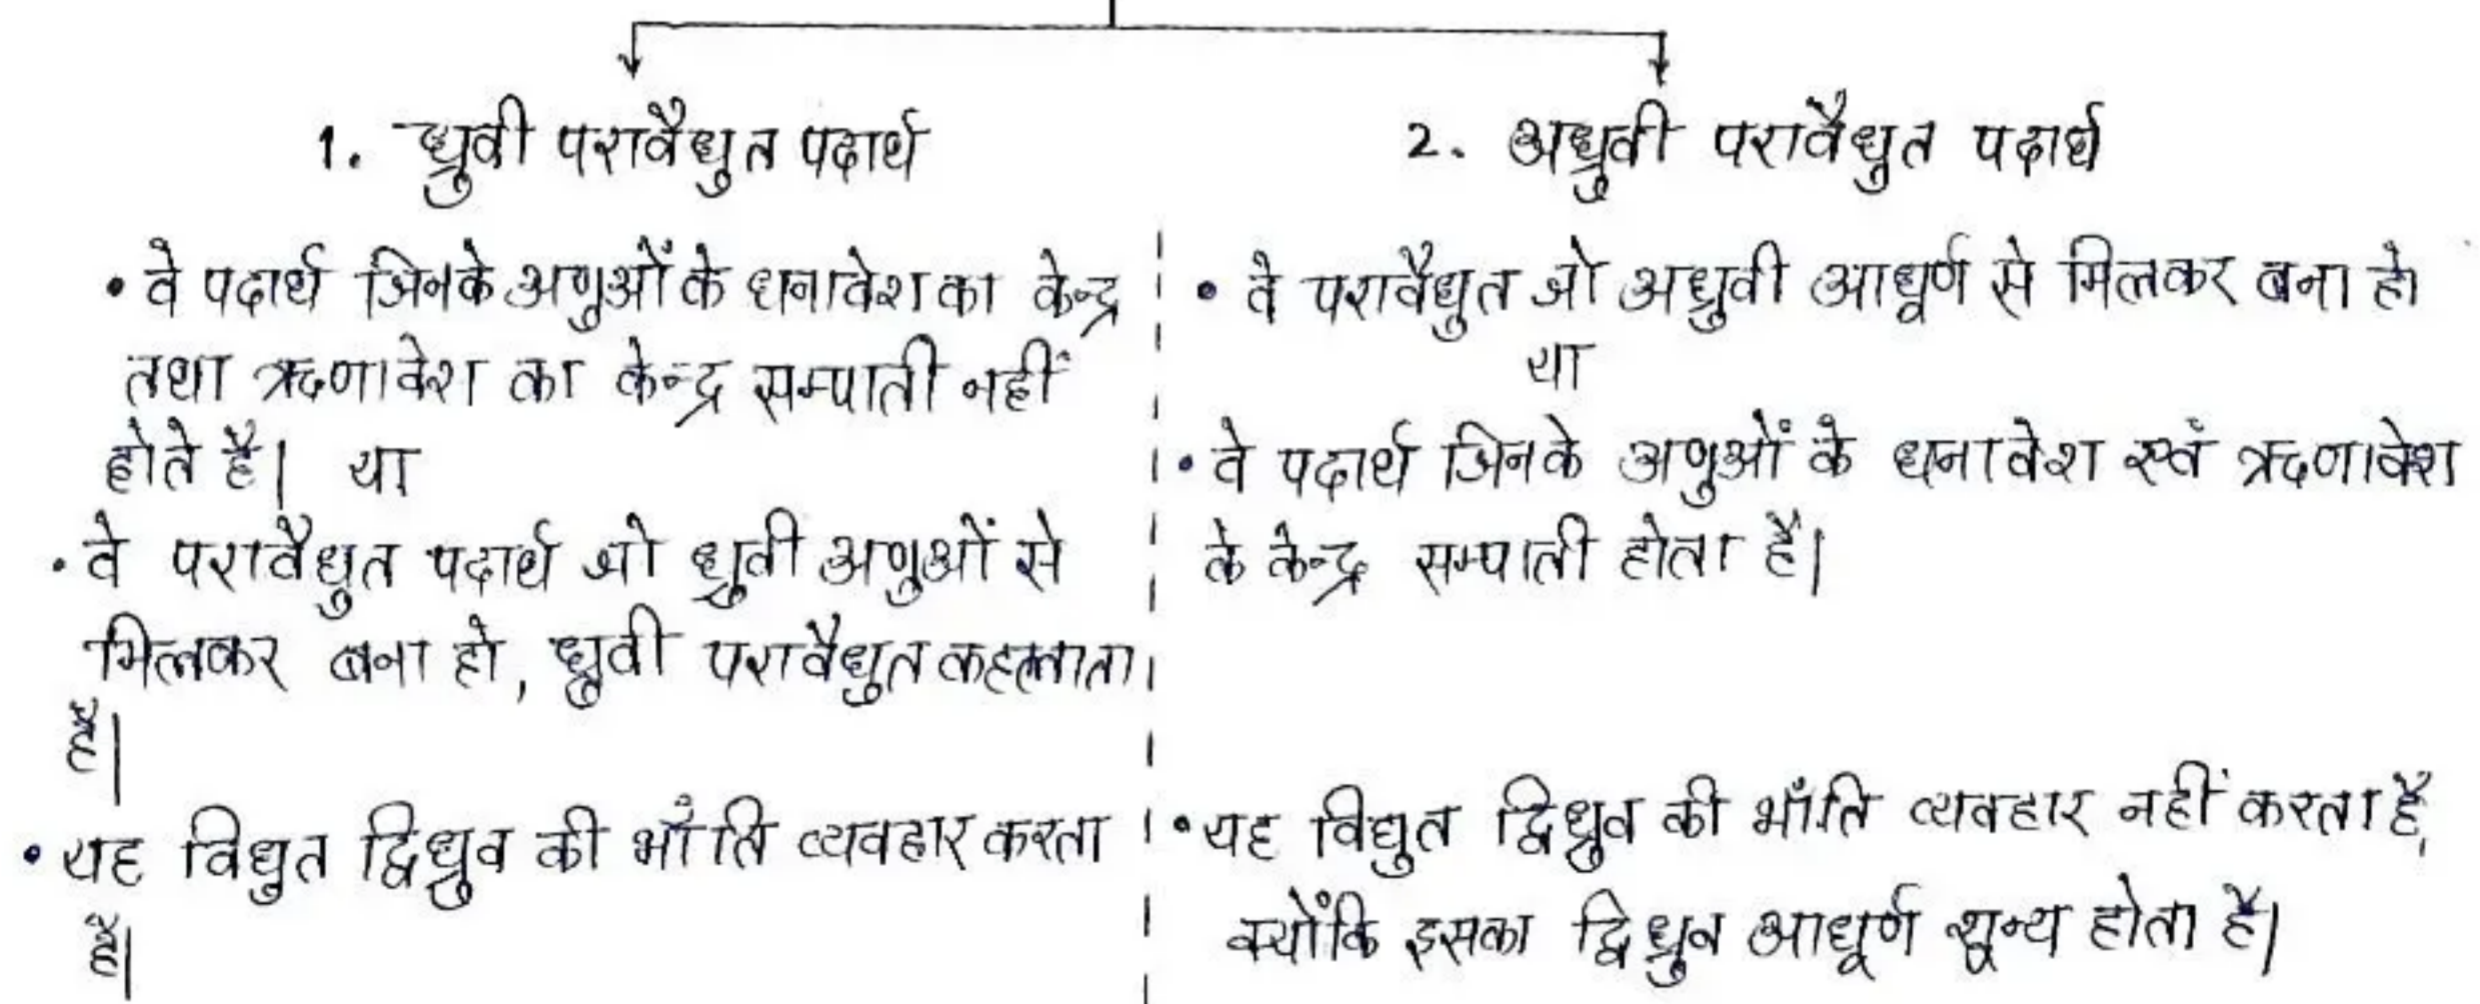 1. ध्रुवी परावैधुत पदार्थ
• वे पदार्थ जिनके अणुओं के धनावेश का केन्द्र
तथा ऋणावेश का केन्द्र सम्पाती नहीं
होते है। या
• वे परावैधुत पदार्थ जो ध्रुवी अणुओं से
मिलकर बना हो, ध्रुवी परावैधुत कहलाता
है।
• यह विधुत द्विध्रुव की भाँति व्यवहार करता
है।
2. अध्रुवी परावैधुत पदार्थ
• वे परावैधुत जो अध्रुवी आधूर्ण से मिलकर बना हो
या
• वे पदार्थ जिनके अणुओं के धनावेश एवं ऋणावेश
के केन्द्र सम्पाती होता है।
• यह विधुत द्विध्रुव की भाँति व्यवहार नहीं करता है,
क्योंकि इसका द्विध्रुव आधूर्ण शून्य होता है।